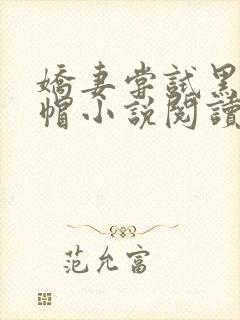 嬌妻嘗試黑
帽小說閱讀
范允富